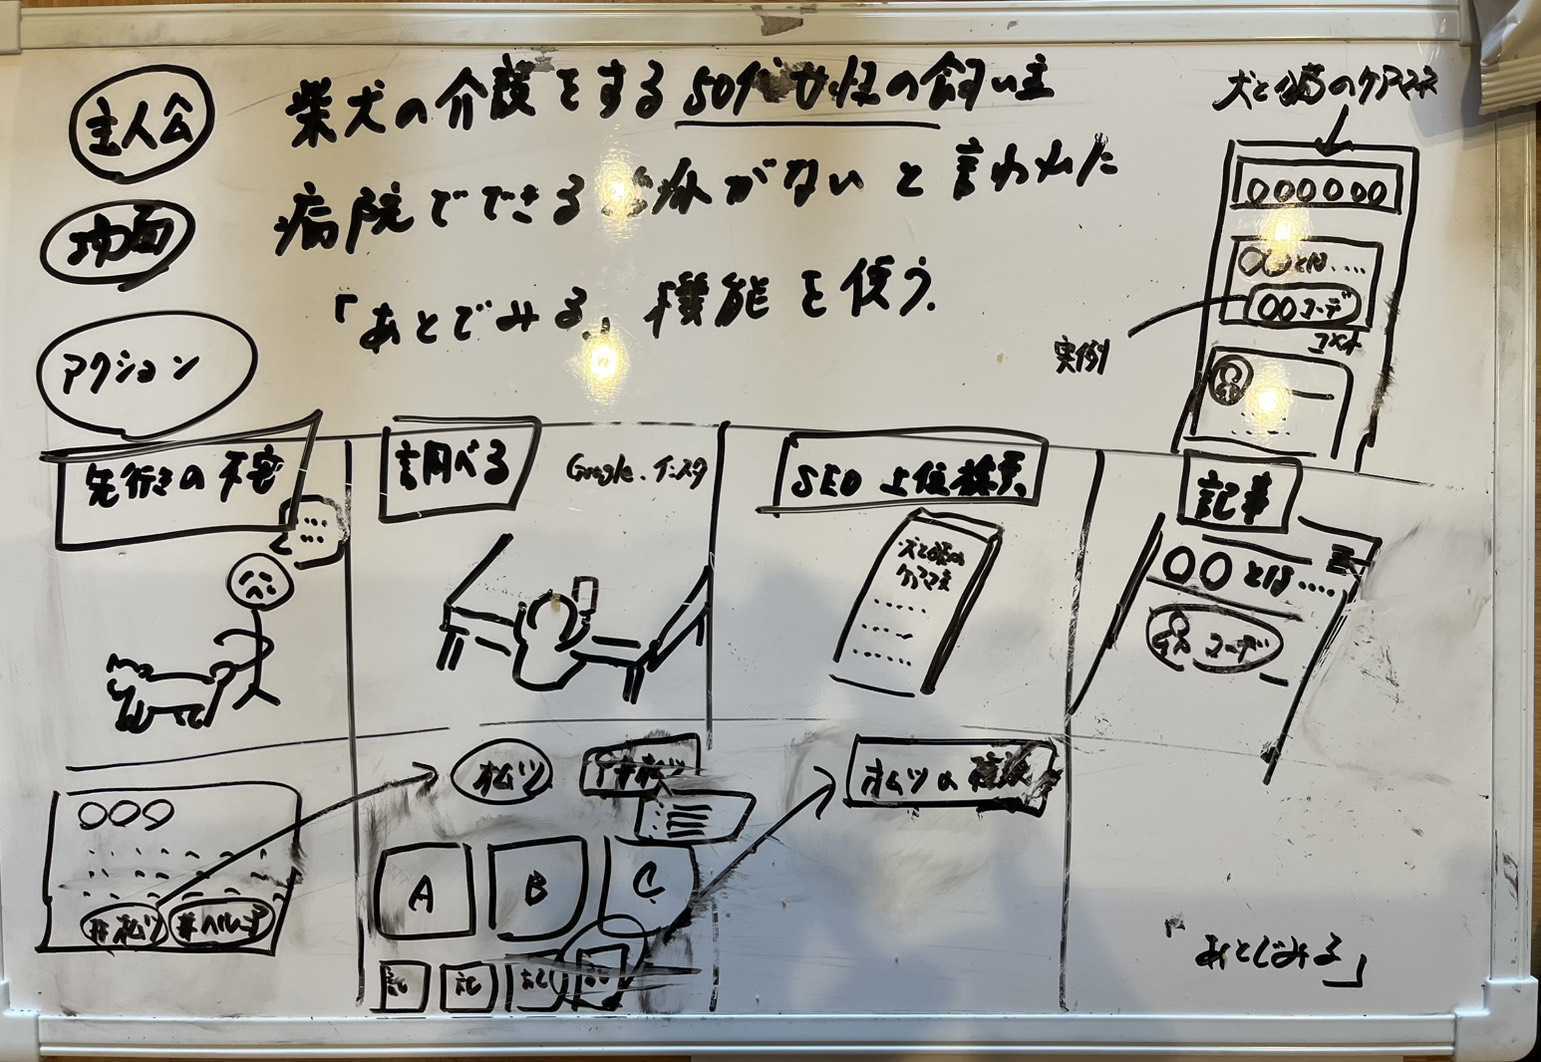 主人公
柴犬の介護をする50代女性の飼い主
場面
病院でできる治療がないと言われた
アクション
「あとでみる」機能を使う.
犬と猫のケアマネ
○○○○○○
○○とは.....
○○コーデ
コメント
実例
先行きの不安
...
調べる
Google.インスタ
SEO 上位検索
犬と猫の
ケアマネ
記事
○○とは....
コーデ
○○○
#オムツ
オムツ
オムツの
A
B
C
記
記
記
「あとでみる」